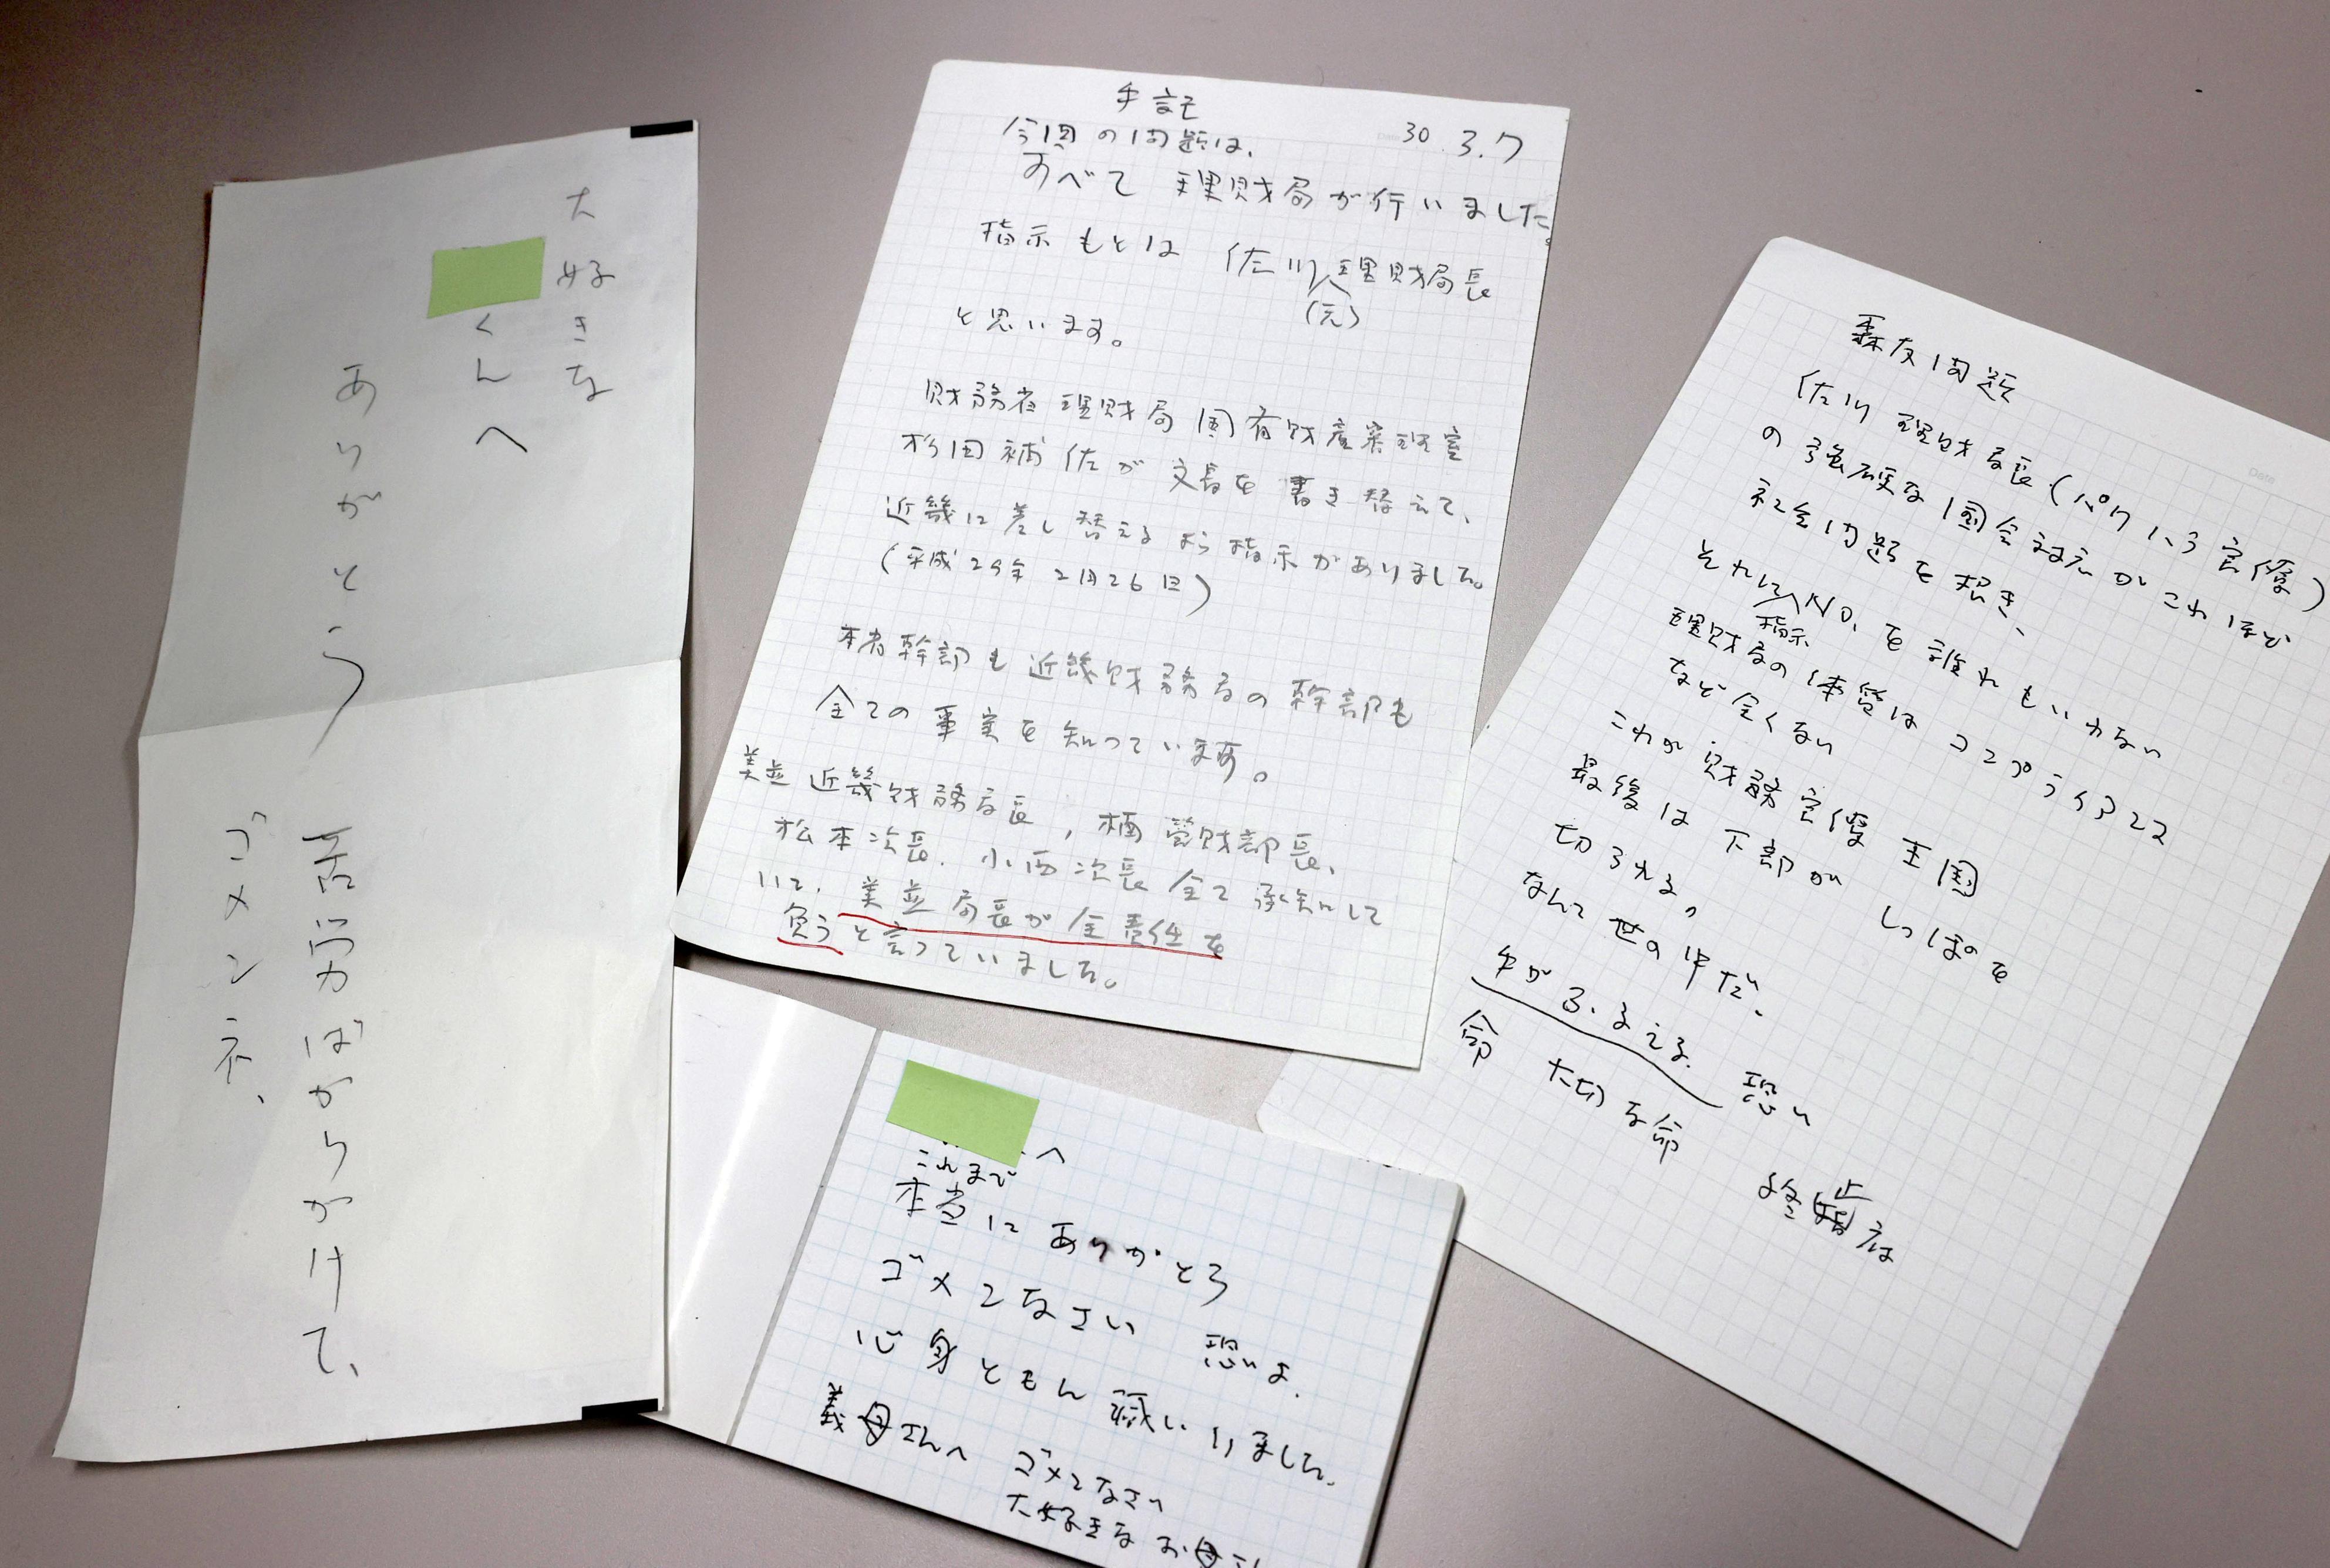 大好きな
くんへ
ありがとう
ゴメンネ、
手記
30.3.7
今回の問題は、
すべて 理財局が行いました。
指示もとは 佐川(元)理財局長
と思います。
財務省理財局 国有財産審理室
杉田補佐が 文書を書き替えて、
近畿に差し替えるよう指示がありました。
(平成29年 2月26日)
本省幹部も近畿財務局の幹部も
全ての事実を知っています。
美並近畿財務局長, 楠管財部長、
松本次長. 小西次長 全て承知して
いて. 美並局長が全責任を
負うと言っていました。
森友問題
佐川理財局長(パワハラ官僚)
の強硬な国会対応がこれほど
社会問題を招き、
それにNO.を誰れもいわない
指示
理財局の体質はコンプライアンス
など全くない
これが財務官僚王国
最後は下部がしっぽを
切られる。
なんて世の中だ.
手がふるえる. 恐い
命 大切な命 終止
へ
これまで
本当にありがとう
ゴメンなさい 恐いよ.
心身ともに滅いりました.
義母さんへ ゴメンなさい
大好きなお母さん